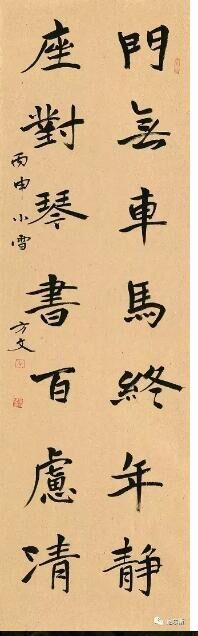 門無車馬終年静
座對琴書百慮清
丙申小雪
方文